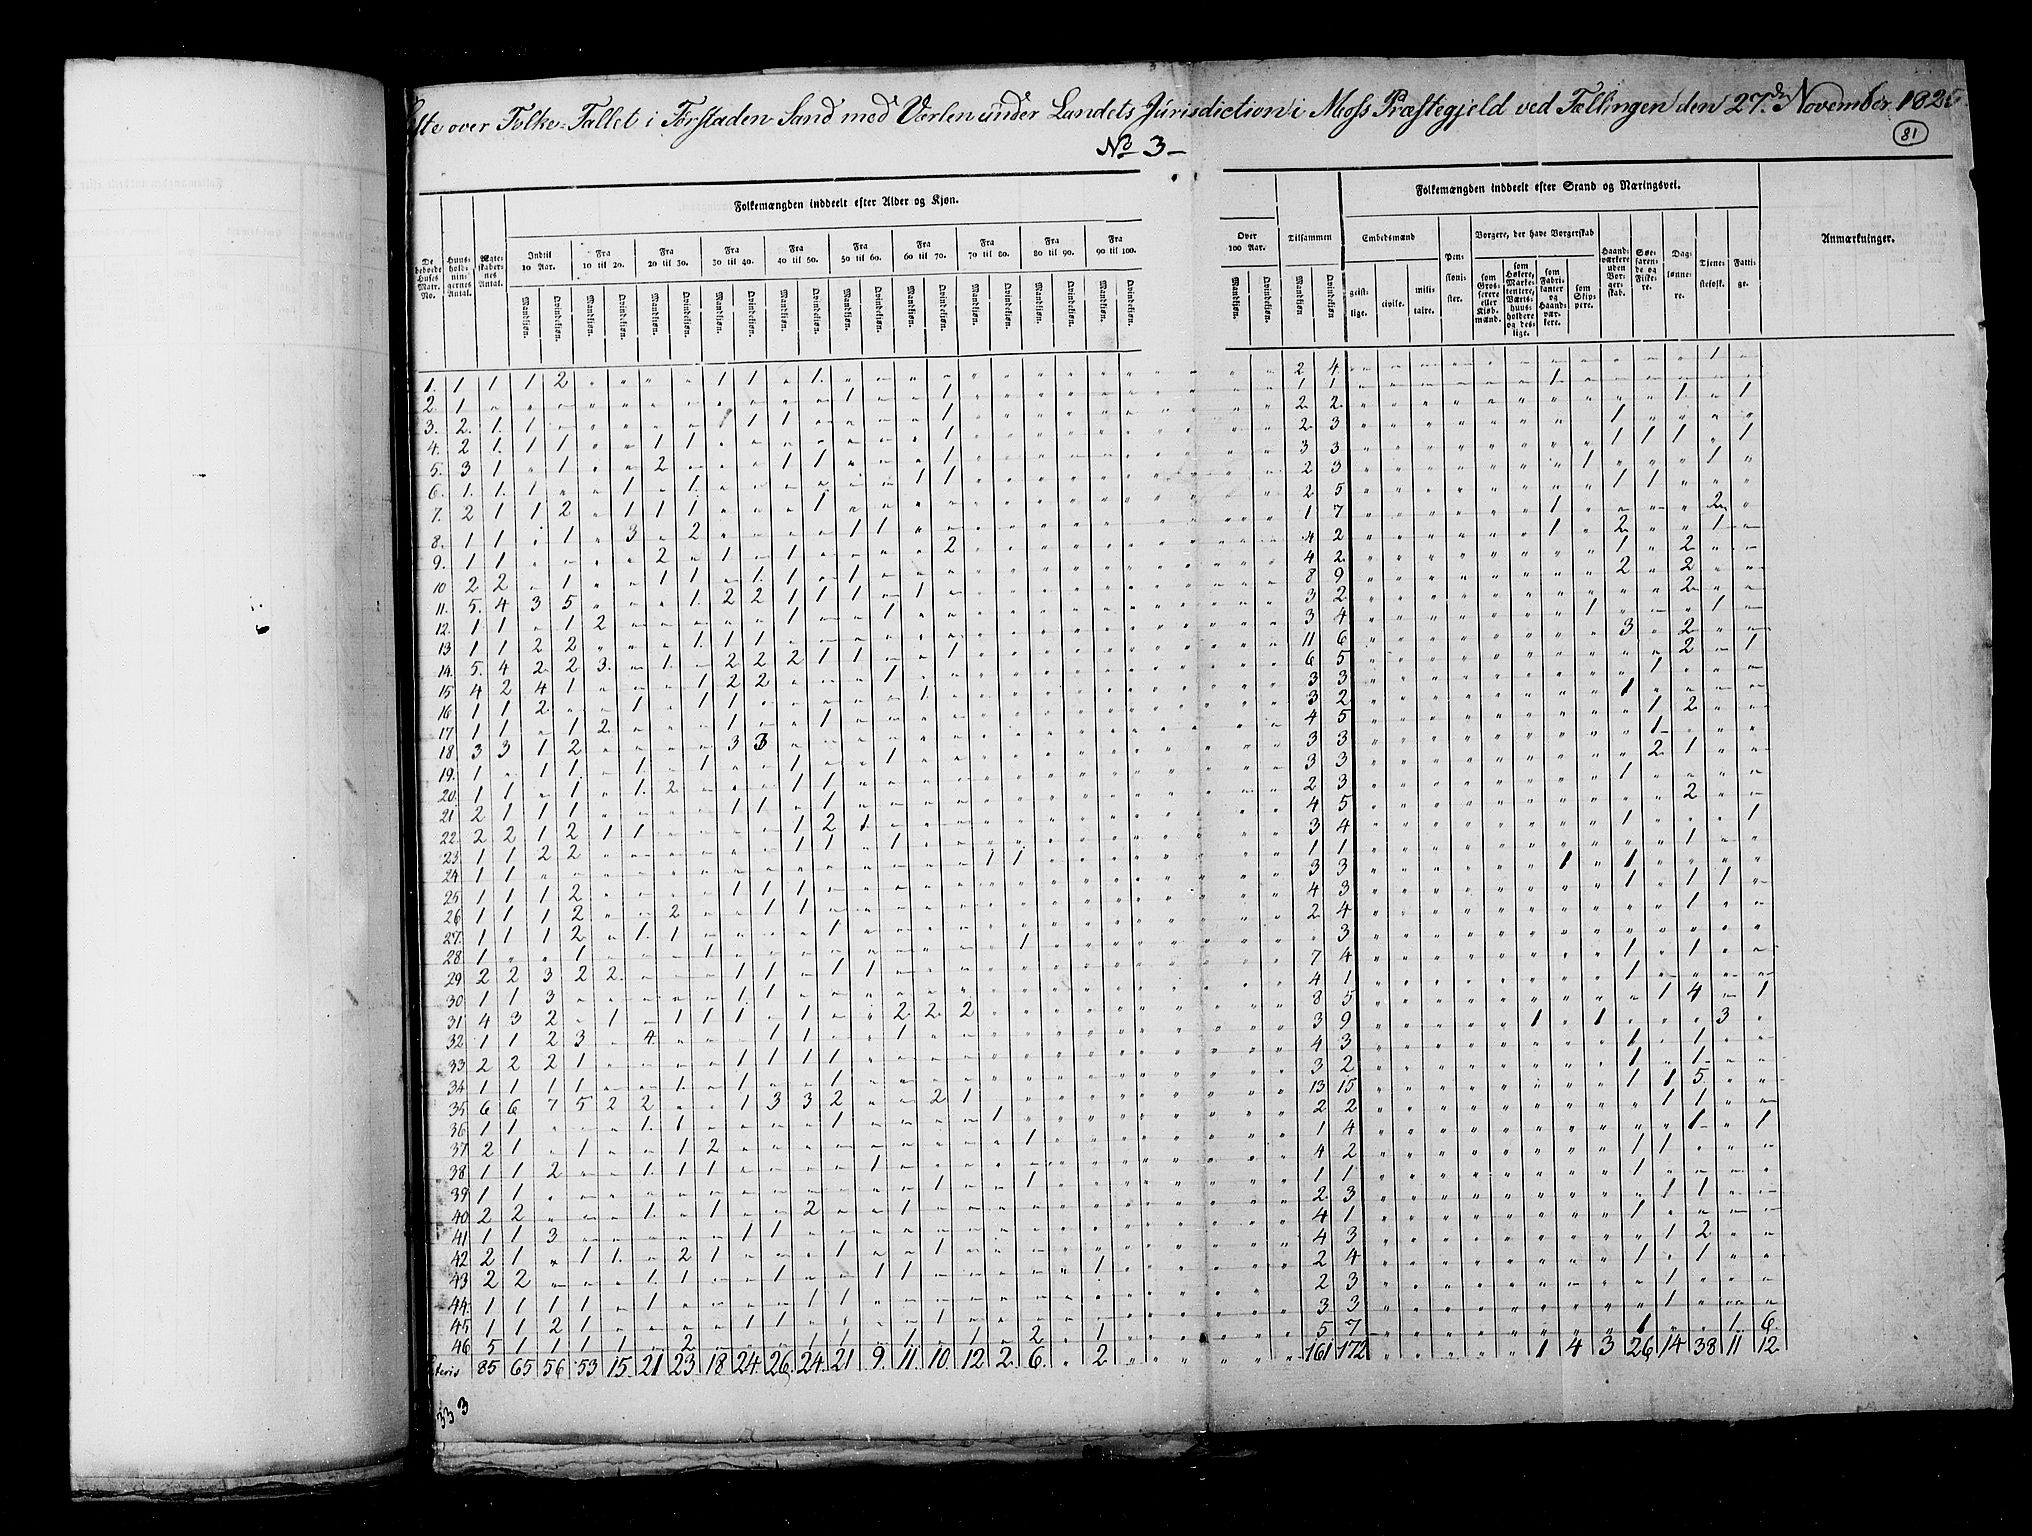 over Folke-Tallet i Forstaden Sand med Værlen under Landets Jürisdiction i Moss Præstegjeld ved Tællingen den 27de November 1825
81
No 3
Folkemængden inddeelt efter Alder og Kjøn.
Folkemængden inddeelt efter Stand og Næringsvei.
De beboede Huses Matr. No.
Huus-hold-nin-gernes Antal.
Ægte-skaber-nes Antal.
Indtil 10 Aar.
Fra 10 til 20.
Fra 20 til 30.
Fra 30 til 40.
Fra 40 til 50.
Fra 50 til 60.
Fra 60 til 70.
Fra 70 til 80.
Fra 80 til 90.
Fra 90 til 100.
Over 100 Aar.
Tilsammen
Embedsmænd
Pen-sioni-ster.
Borgere, der have Borgerskab
Haand-værkere uden Bor-gerskab.
Søe-farende og Fiske-re.
Dag-lønne-re.
Tjene-stefolk.
Fatti-ge.
Anmærkninger.
Mandkjøn. Qvindekjøn. Mandkjøn. Qvindekjøn. Mandkjøn. Qvindekjøn. Mandkjøn. Qvindekjøn. Mandkjøn. Qvindekjøn. Mandkjøn. Qvindekjøn. Mandkjøn. Qvindekjøn. Mandkjøn. Qvindekjøn. Mandkjøn. Qvindekjøn. Mandkjøn. Qvindekjøn. Mandkjøn. Qvindekjøn. Mandkjøn Qvindekjøn
geist-lige. civile. mili-taire.
som Grosserere eller Kjøbmænd.
som Høkere, Marketentere, Værtshuusholdere og deslige.
som Fabrikanter og Haandværkere.
som Skippere.
1. 1 1 1 2 1 1 1. 2 4 1
2. 1 1 1 1 1 1
3. 2. 1. 1 1 1 1 2 2 1. 1
4. 2 1. 1 1 1 1 1 2 3 1
5. 3 1 1 2 1 1 1 3 3 1 1 1 1
6. 1. 1. 1 1 1. 1 1 2 3 1 1
7. 2 1 1 2 1 1 1 1 2 5 1 1
8. 1 1 1 3 2 1 1 1 7 1 2
9. 1 1 2 1 1 2 4 2 1 2 1
10 2 2 1 1 1 1. 1 1 4 2 1 2
11. 5. 4 3 5 1. 2 2 1 1 1 1 8 9 2 2
12. 1 1 1 2 1 1 3 2 2
13 1 1 2 2 1. 1 1 3 4 1 1
14. 5. 4 2 2 3. 1. 2 2 2 1 1 1 11 6 3 2
15 4 2 4 1 1 2 2 1 6 5 2 1
16 1 1 2 1 1 1 1 3 3 1
17 1 1 1 2 1 1 3 2 1
18 3 3 1 2 3 3 4 5 1 2
19. 1 1 1 1. 1 1 1 3 3 1
20. 1 1 1 1. 2 1 1 3 3 2 1
21 2 1 1 1 1 1 1 2 3 1
22. 2 2 1 2 1 1 1 2 1 4 5 2
23 1 1 2 2 1 1 1 3 4 1 1
24 1 1 1 1 1 1 1
25 1 1 1 2 1 1 1 3 3 1 1
26 1 1 1 2 2 1 1 4 3 1 1 1
27. 1 1 1 2 1. 1 1 2 4 1
28. 1 1 1 1 3
29 2 2 3 2 2 1 1 1 1 7 4 1 1
30 1 1 3 1. 1 4 1 1
31 4 3 2 1 1 1 1 1 2 2 2 8 5 1 4 1
32 1 1 2 3 4 1 1 1 3 9 1 1 3
33 2 2 2 1 1 1 1 1 4 3 1 1
34 1 1 1 1 1. 1 1 3 2 1 1
35 6 6 7 5 2 2 1 3 3 2 2 1 13 15 1 1 5
36 1 1 1. 1 1 1 2 2 1 1
37 2 1 1 1 2 1 1 4 1 1
38 1 1 2 1. 1 1 1 4 2 1 1
39 1 1 1 1 1 1 1
40 2 2 1. 1 2 1 2 3 1 1
41 1 1 3 1 1 4 1 1
42 2 1 1 1. 2 1 1 1 4 3 1 2
43 2 2 1. 1 1 1 1 1 2 4 1 1
44 1 1 1 1 1 1 1 2 3 1
45 1 1 2 1 1 1 1 3 3 1
46 5 1 1 1 1 2 1 1 1 1 2 1 5 7 1 1 6
85 65 56 53 15. 21 23 18 24 26 24. 21 9. 11. 10. 12 2. 6. 2 161 172 1 4 3 26 14 38 11 12
333